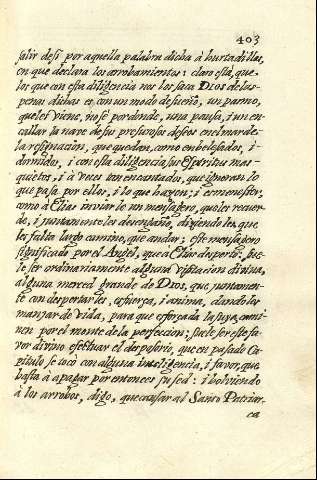 403
salir de sí por aquella palabra dicha à hurtadillas,
en que declara los arrobamientos: claro està, que
los que con esta diligencia nos los saca DIOS de las
penas dichas es con un modo de sueño, un pasmo,
que les viene, no sè por donde, una pausa, i un en-
callar la nave de sus presurosos deseos en el mar de
la resignacion, que quedan, como embelesados, i
dormidos, i con esta diligencia sus Espiritus mas
quietos; i à veces tan encantados, que ignoran lo
que pasa por ellos, i lo que hazen; i es menester,
como à Elias inviarle un mensagero, que les recuer-
de, i juntamente les desengañe, diziendoles, que
les falta largo camino, que andar; este mensagero
significado por el Angel, que à Elias despertò, sue-
le ser ordinariamente alguna visitacion divina,
alguna merced grande de DIOS, que juntamen-
te con despertarles, esfuerça, i anima, dandoles
manjar de vida, para que esforçada la suya, cami-
nen por el monte de la perfeccion; suele ser este fa-
vor divino efectuar el desposorio, que en pasado Ca-
pitulo se tocò con alguna inteligencia, i favor, que
basta à apagar por entonces su sed: i bolviendo
à los arrobos, digo, que causar al Santo Patriar-
ca